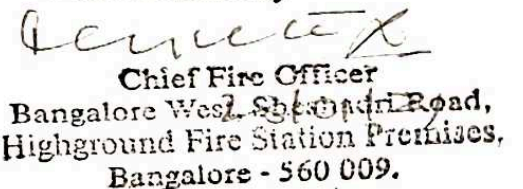 Chief Fire Officer
Bangalore West, Sheshadri Road,
Highground Fire Station Premises,
Bangalore - 560 009.